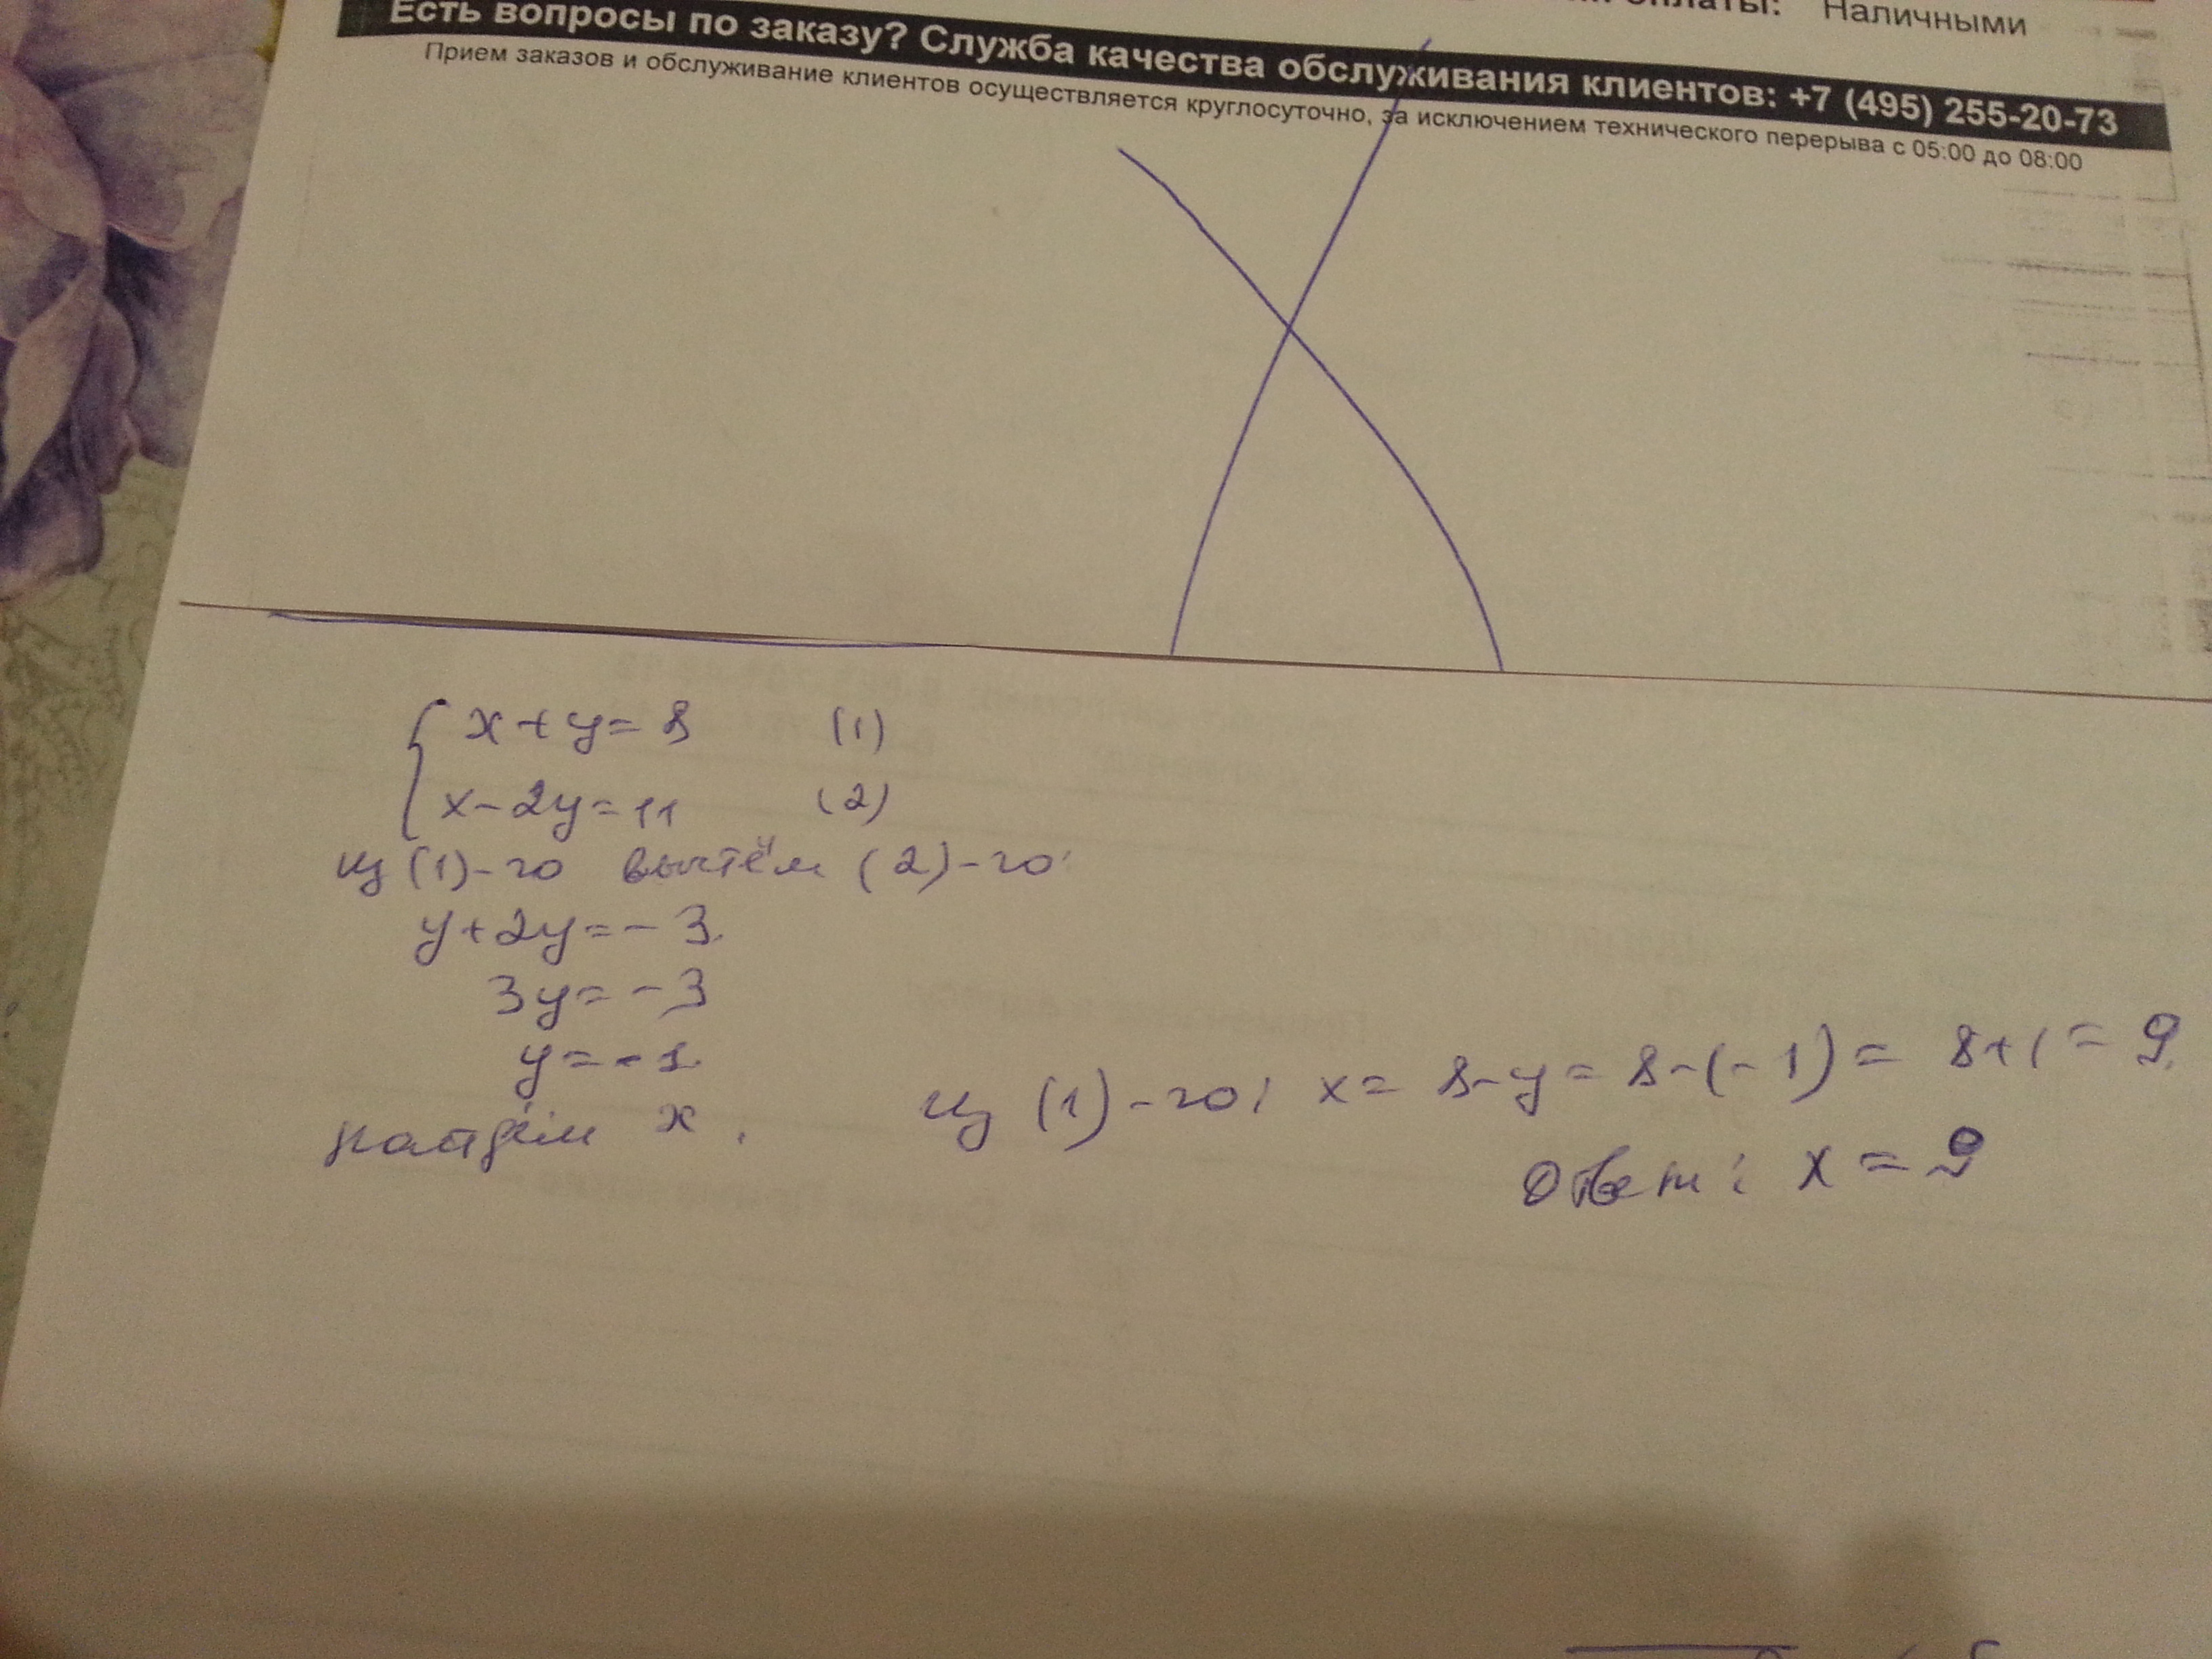 оплаты: Наличными
Есть вопросы по заказу? Служба качества обслуживания клиентов: +7 (495) 255-20-73
Прием заказов и обслуживание клиентов осуществляется круглосуточно, за исключением технического перерыва с 05:00 до 08:00
x+y=8 (1)
x-2y=11 (2)
из (1)-го вычтём (2)-го:
y+2y=-3.
3y=-3
y=-1.
найдём x.
из (1)-го: x= 8-y= 8-(-1)= 8+1=9.
Ответ: x=9